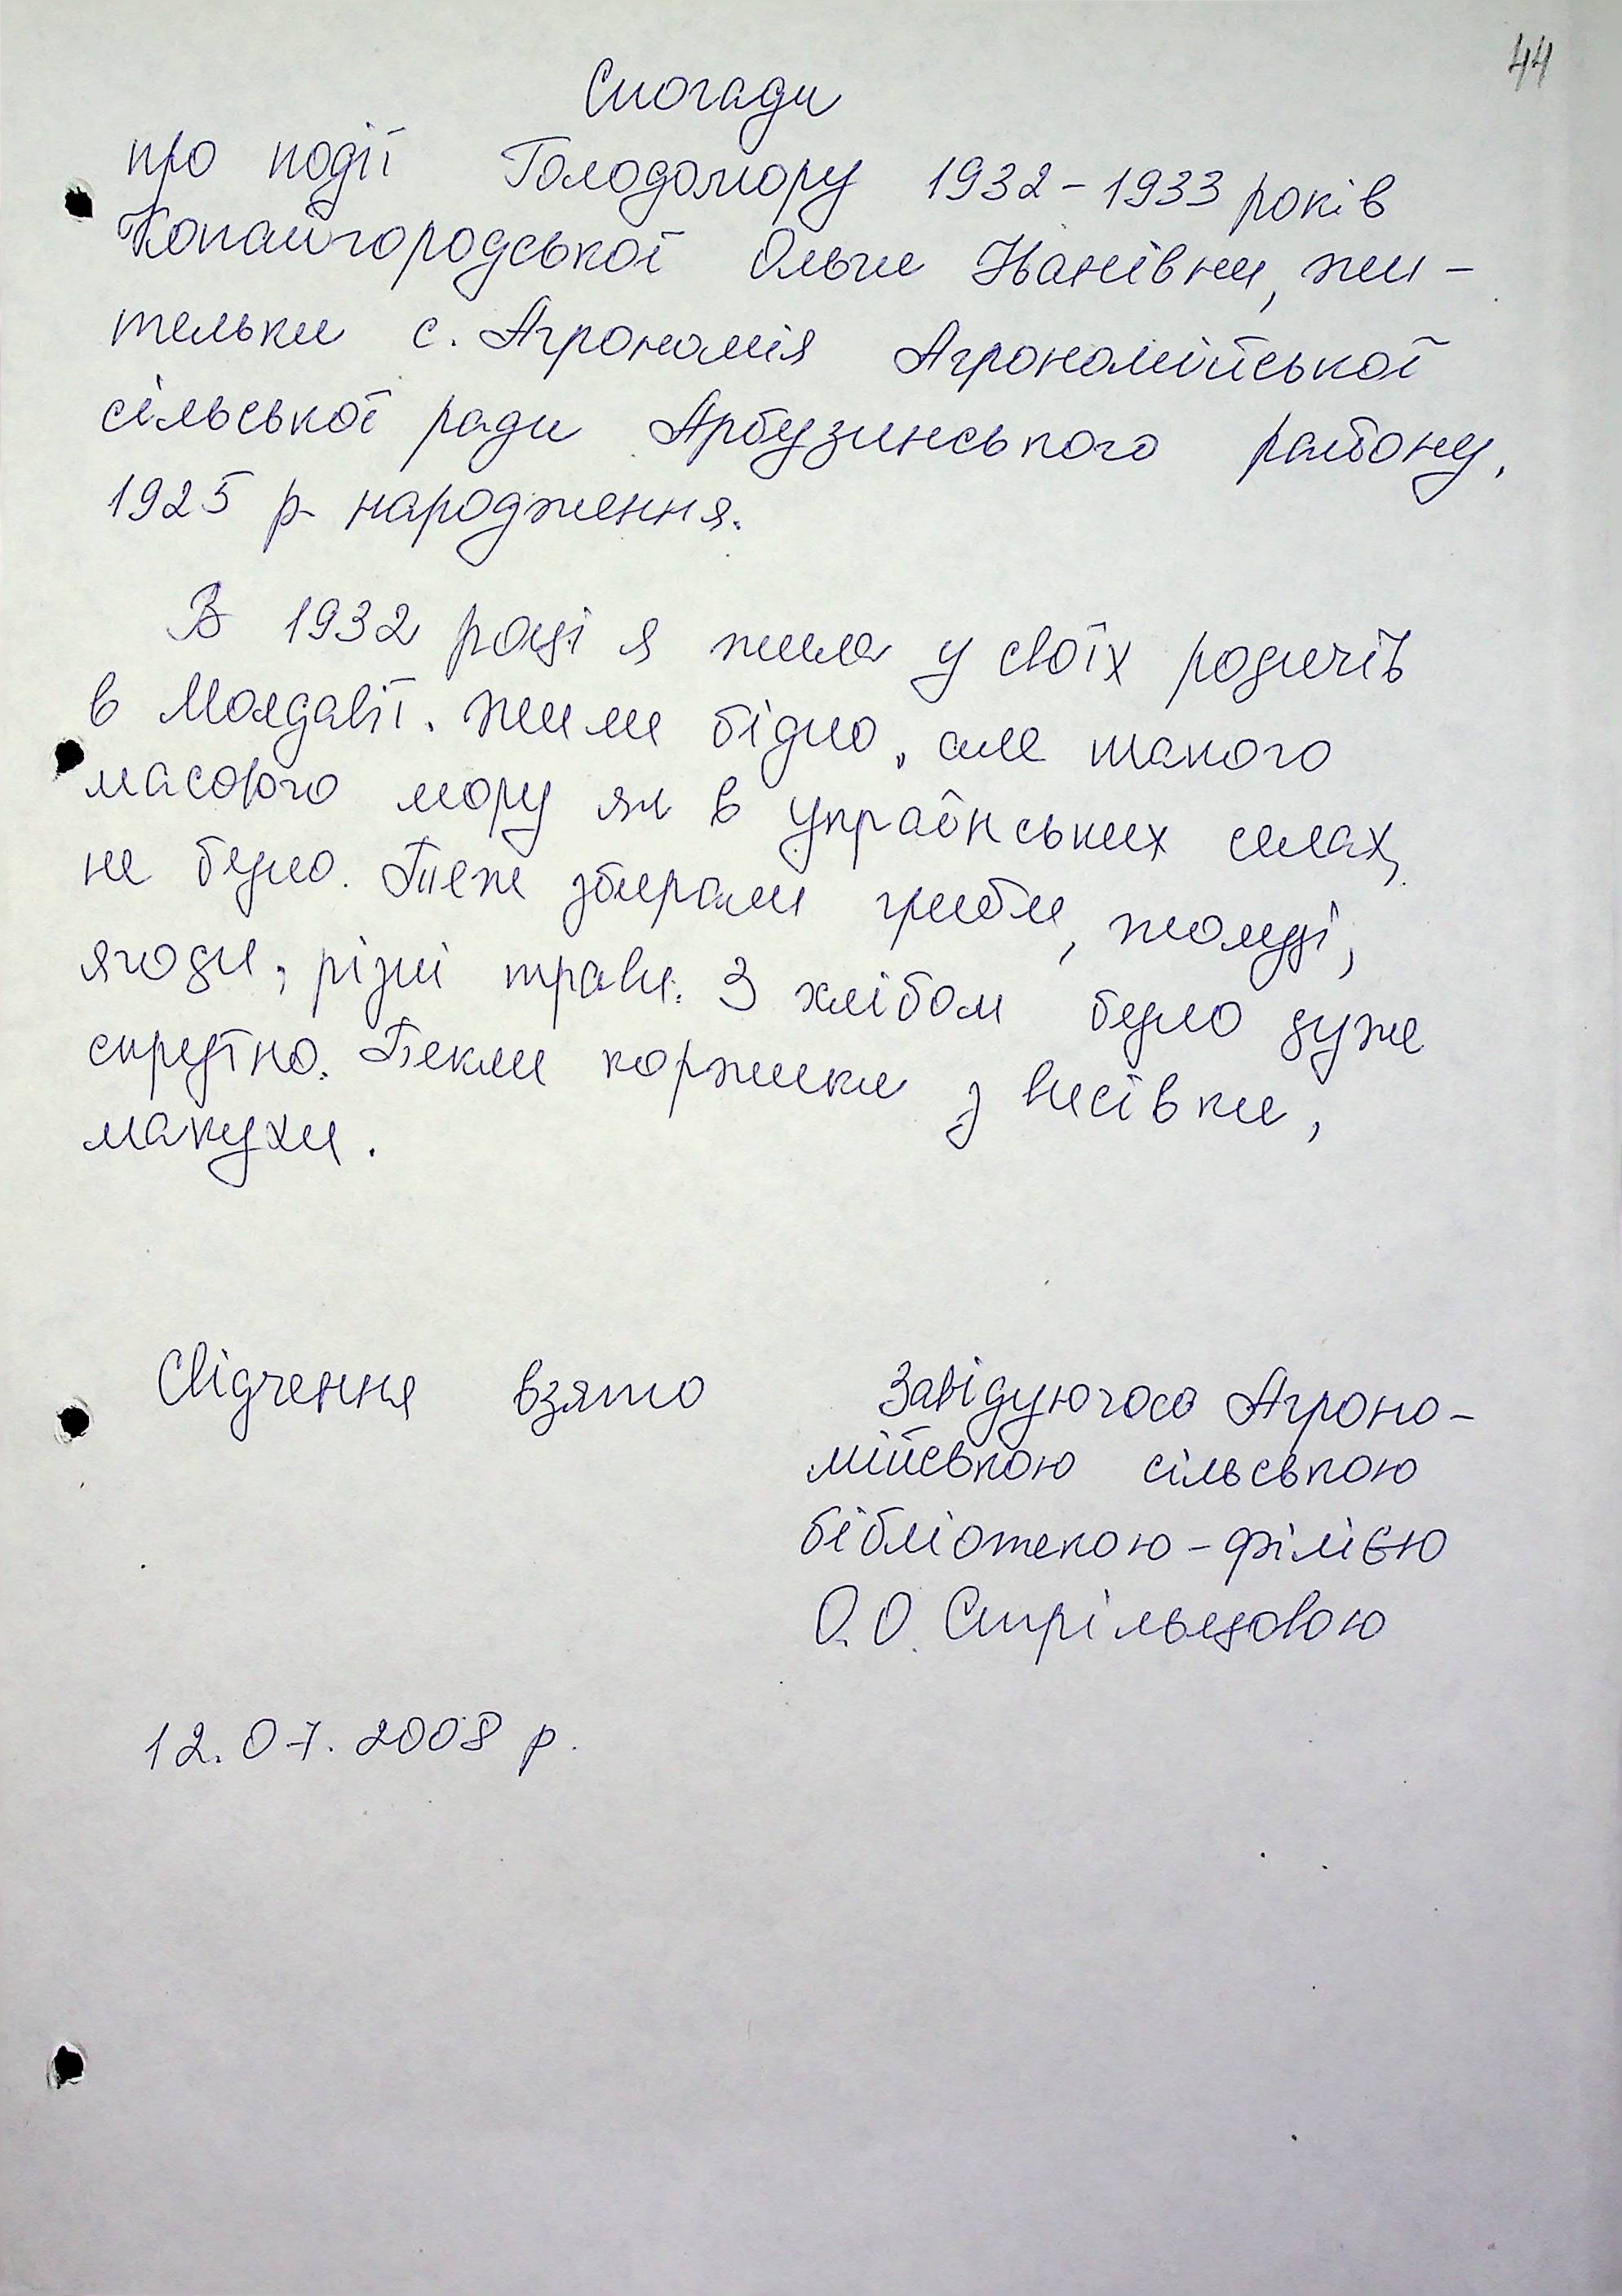 44
Спогади
про події Голодомору 1932-1933 років
Копайгородської Ольги Іванівни, жи-
тельки с. Агрономія Агрономійської
сільської ради Арбузинського району,
1925 р. народження.
В 1932 році я жила у своїх родичів
в Молдавії. Жили бідно, але такого
масового мору як в українських селах,
не було. Теж збирали гриби, жолуді,
ягоди, різні трави. З хлібом було дуже
скрутно. Пекли коржики з висівки,
макухи.
Свідчення взято Завідуючою Агроно-
мійською сільською
бібліотекою-філією
О.О. Стрільцовою
12.07.2008 р.